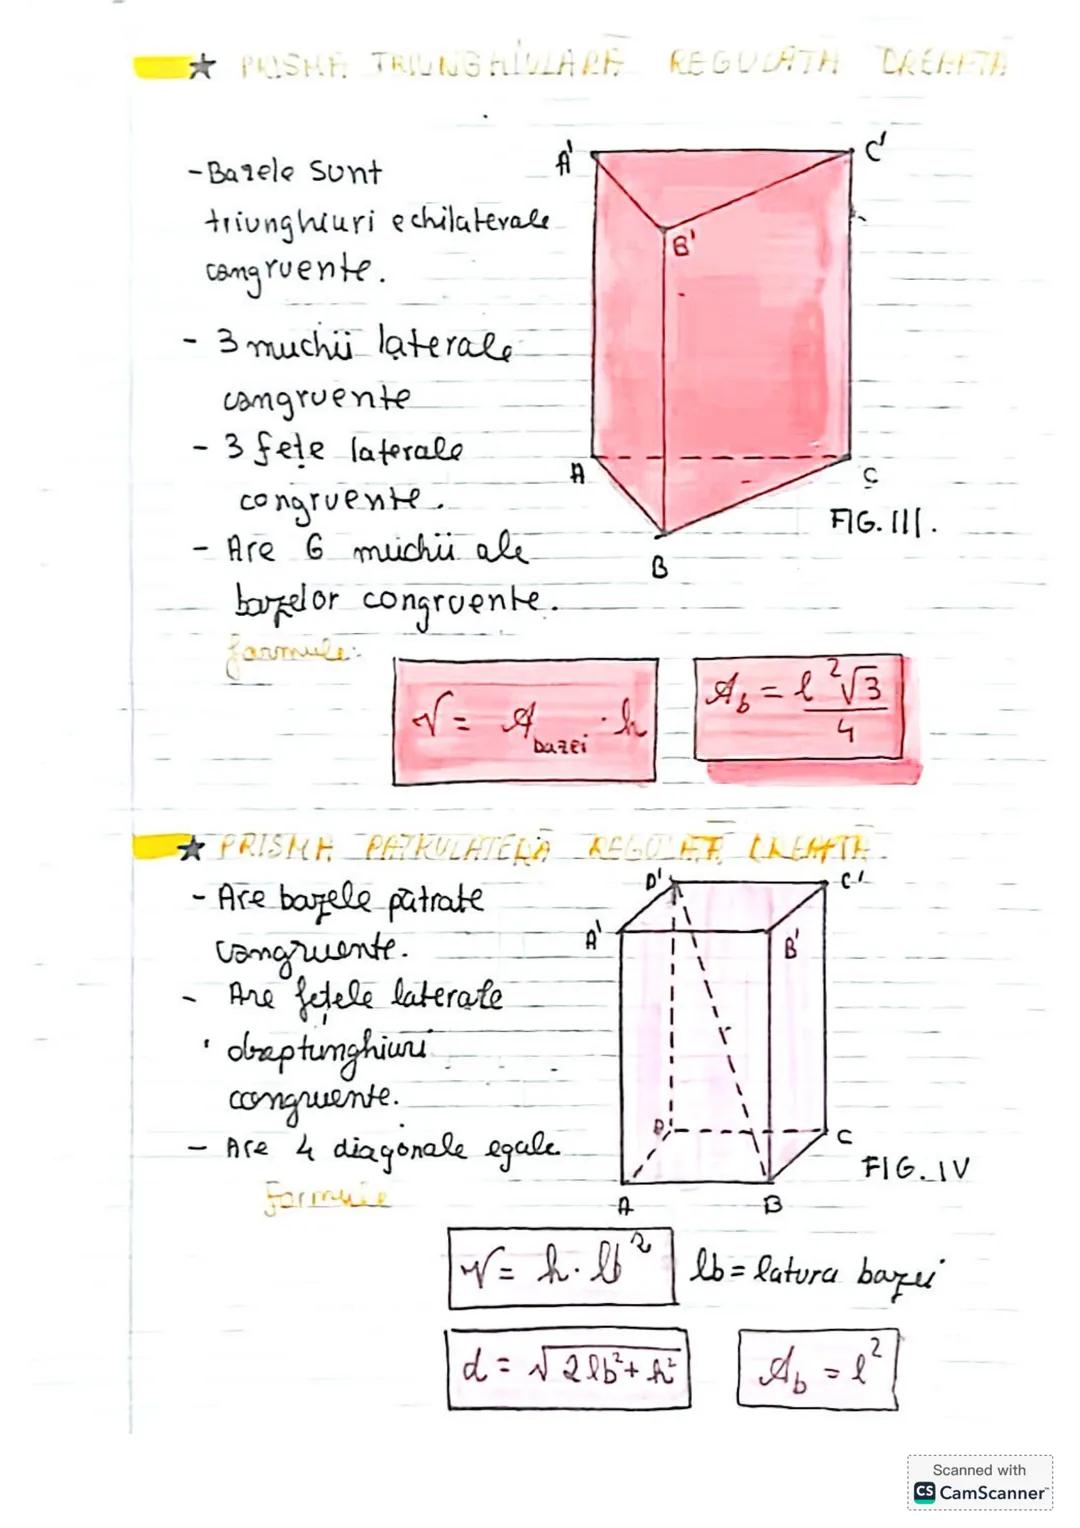 ★ PRISMA TRIUNGHIULARĂ REGULATĂ DREAPTĂ
- Bazele sunt
triunghiuri echilaterale
congruente.
- 3 muchii laterale
congruente
- 3 fețe laterale
congruente.
- Are 6 muchii ale
bazelor congruente.
formule:
A' C'
B'
A C
B
FIG. III.
V = A bazei · h
A_b = l²√3/4
★ PRISMA PATRULATERĂ REGULATĂ DREAPTĂ.
- Are bazele pătrate
congruente.
- Are fețele laterale
dreptunghiuri
congruente.
- Are 4 diagonale egale
Formule
D' C'
A' B'
D C
A B
FIG. IV
V = h · lb²
lb = latura bazei
d = √2lb² + h²
A_b = l²
Scanned with
CS CamScanner